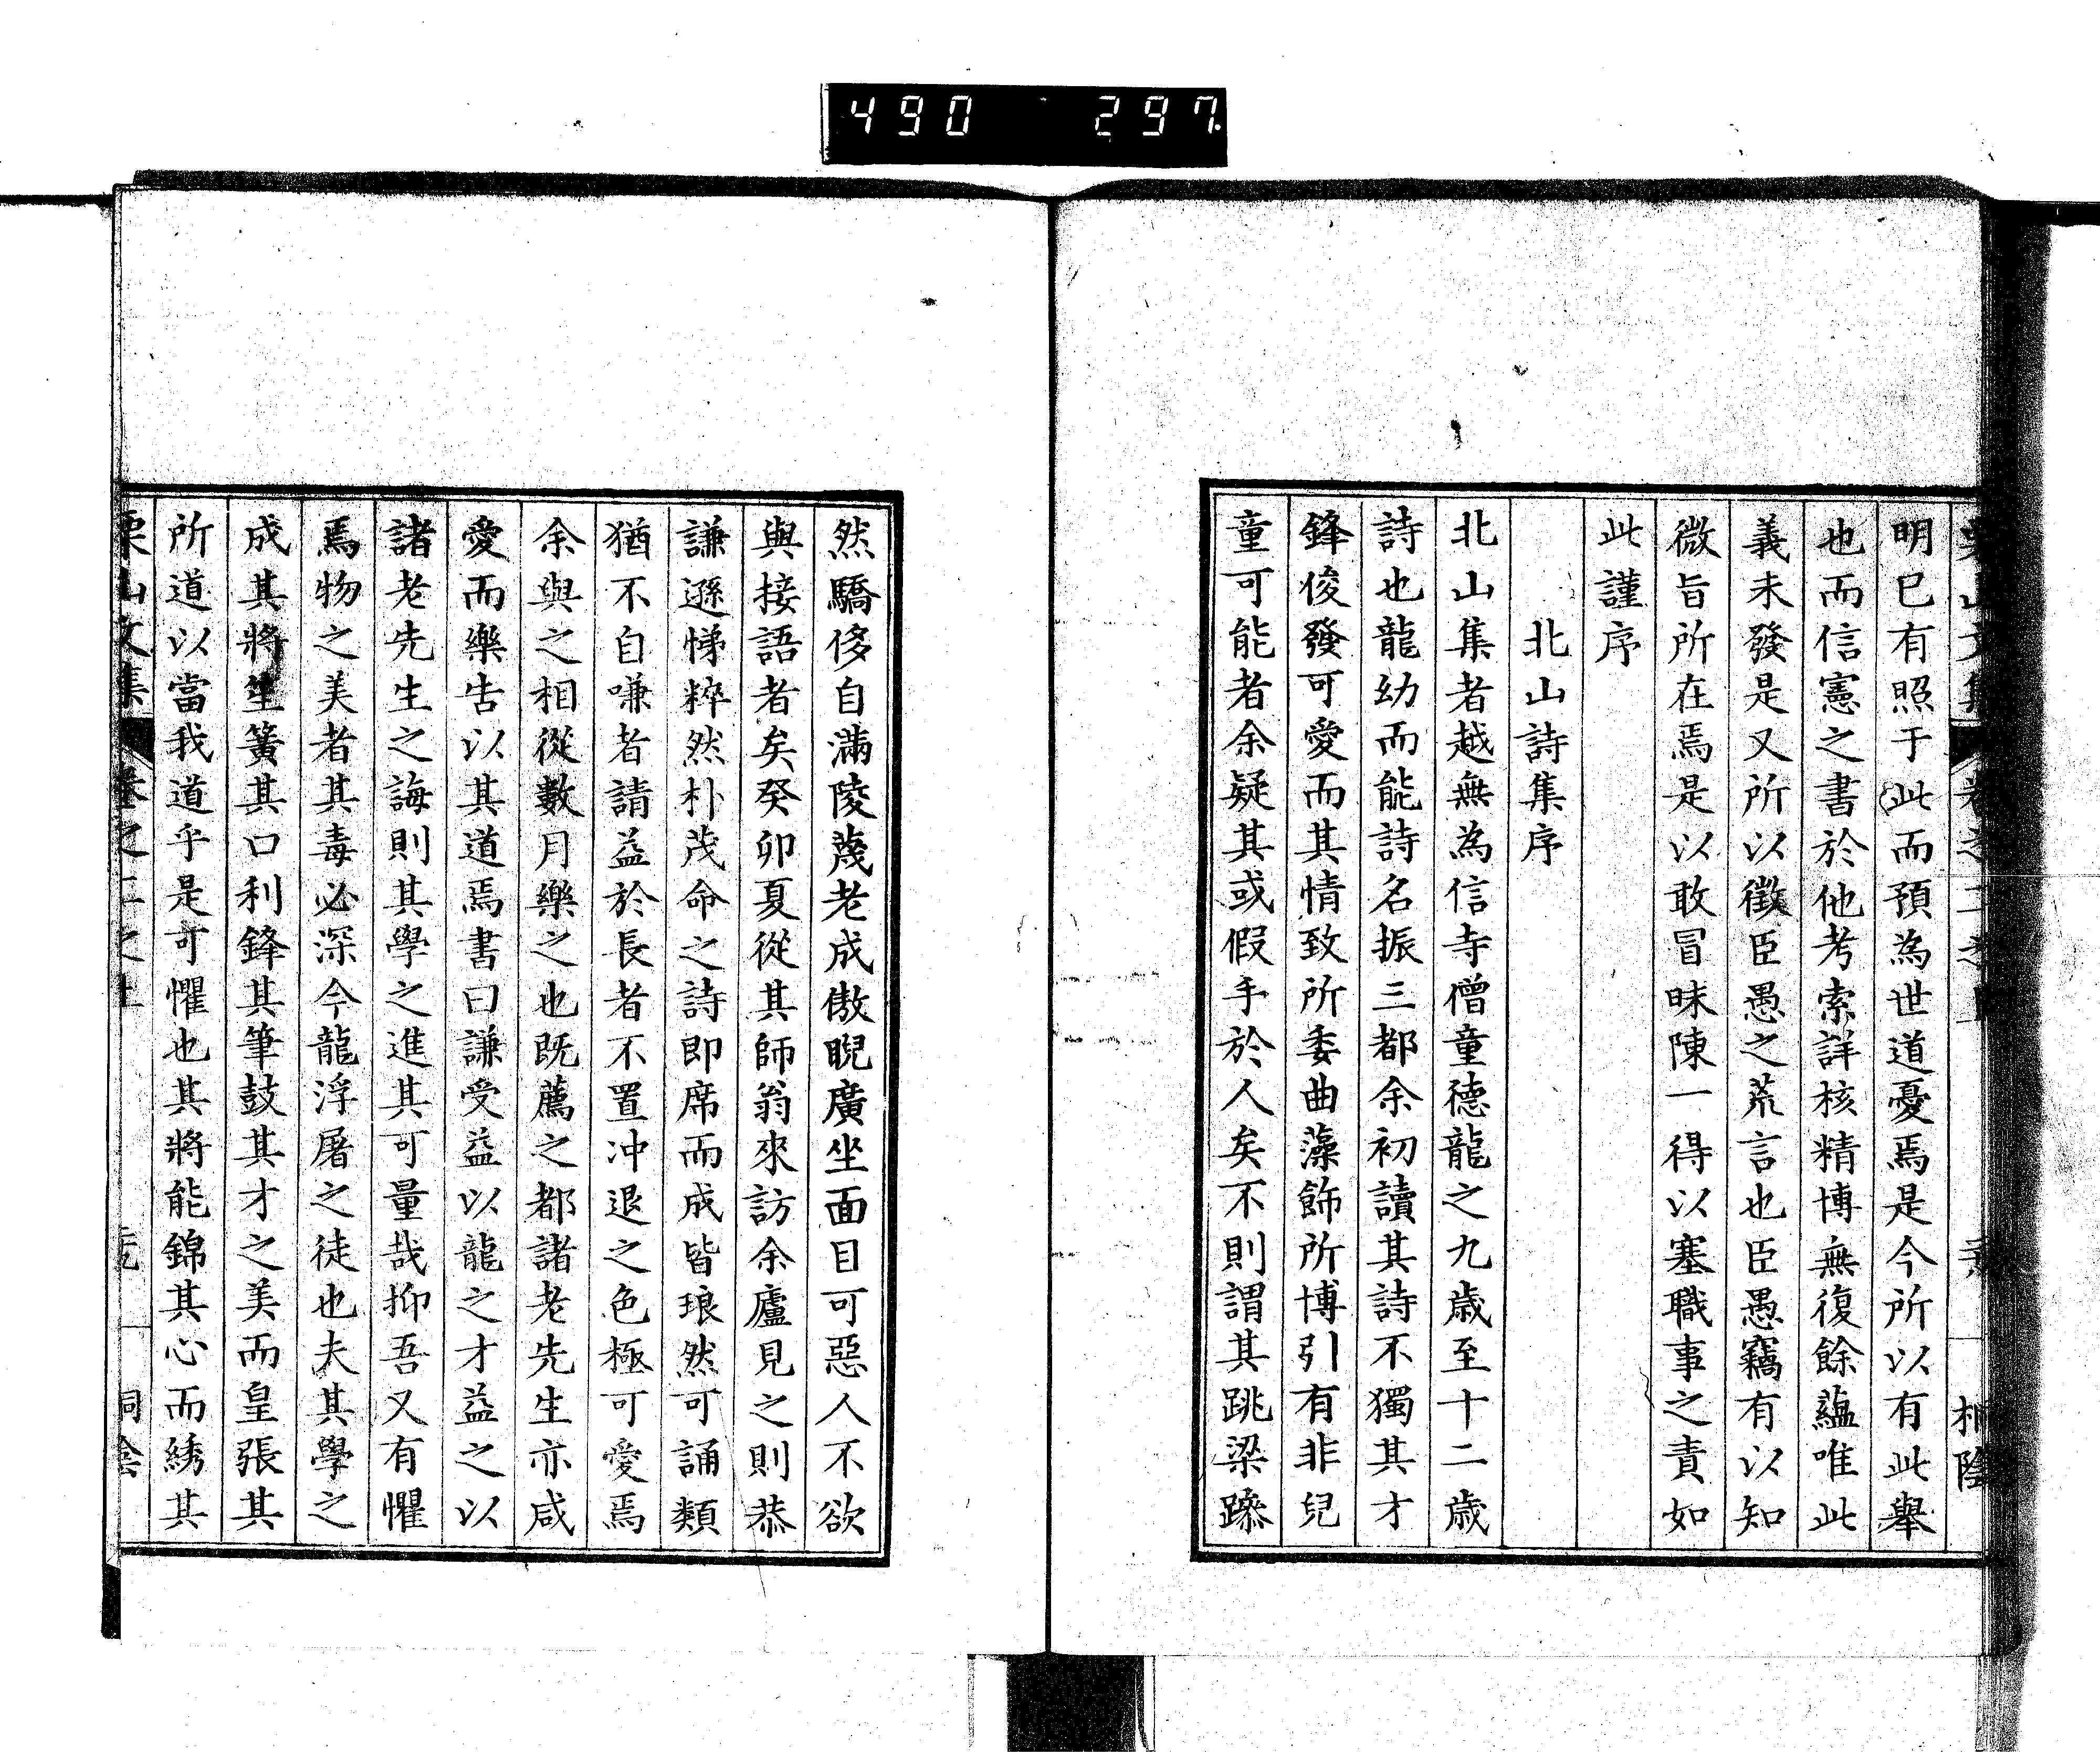 490 297.
明已有照于此而預為世道憂焉是今所以有此舉
也而信憲之書於他考索詳核精博無復餘蘊唯此
義未發是又所以徵臣愚之荒言也臣愚竊有以知
微旨所在焉是以敢冒昧陳一得以塞職事之責如
此謹序
北山詩集序
北山集者越無為信寺僧童德龍之九歲至十二歲
詩也龍幼而能詩名振三都余初讀其詩不獨其才
鋒俊發可愛而其情致所委曲藻飾所博引有非兒
童可能者余疑其或假手於人矣不則謂其跳梁躁
然驕侈自滿陵蔑老成傲睨廣坐面目可惡人不欲
與接語者矣癸卯夏從其師翁來訪余廬見之則恭
謙遜悌粹然朴茂命之詩即席而成皆琅然可誦類
猶不自嗛者請益於長者不置冲退之色極可愛焉
余與之相從數月樂之也既薦之都諸老先生亦咸
愛而樂告以其道焉書曰謙受益以龍之才益之以
諸老先生之誨則其學之進其可量哉抑吾又有懼
焉物之美者其毒必深今龍浮屠之徒也夫其學之
成其將笙簧其口利鋒其筆鼓其才之美而皇張其
所道以當我道乎是可懼也其將能錦其心而綉其
栗山文集 卷之二之上